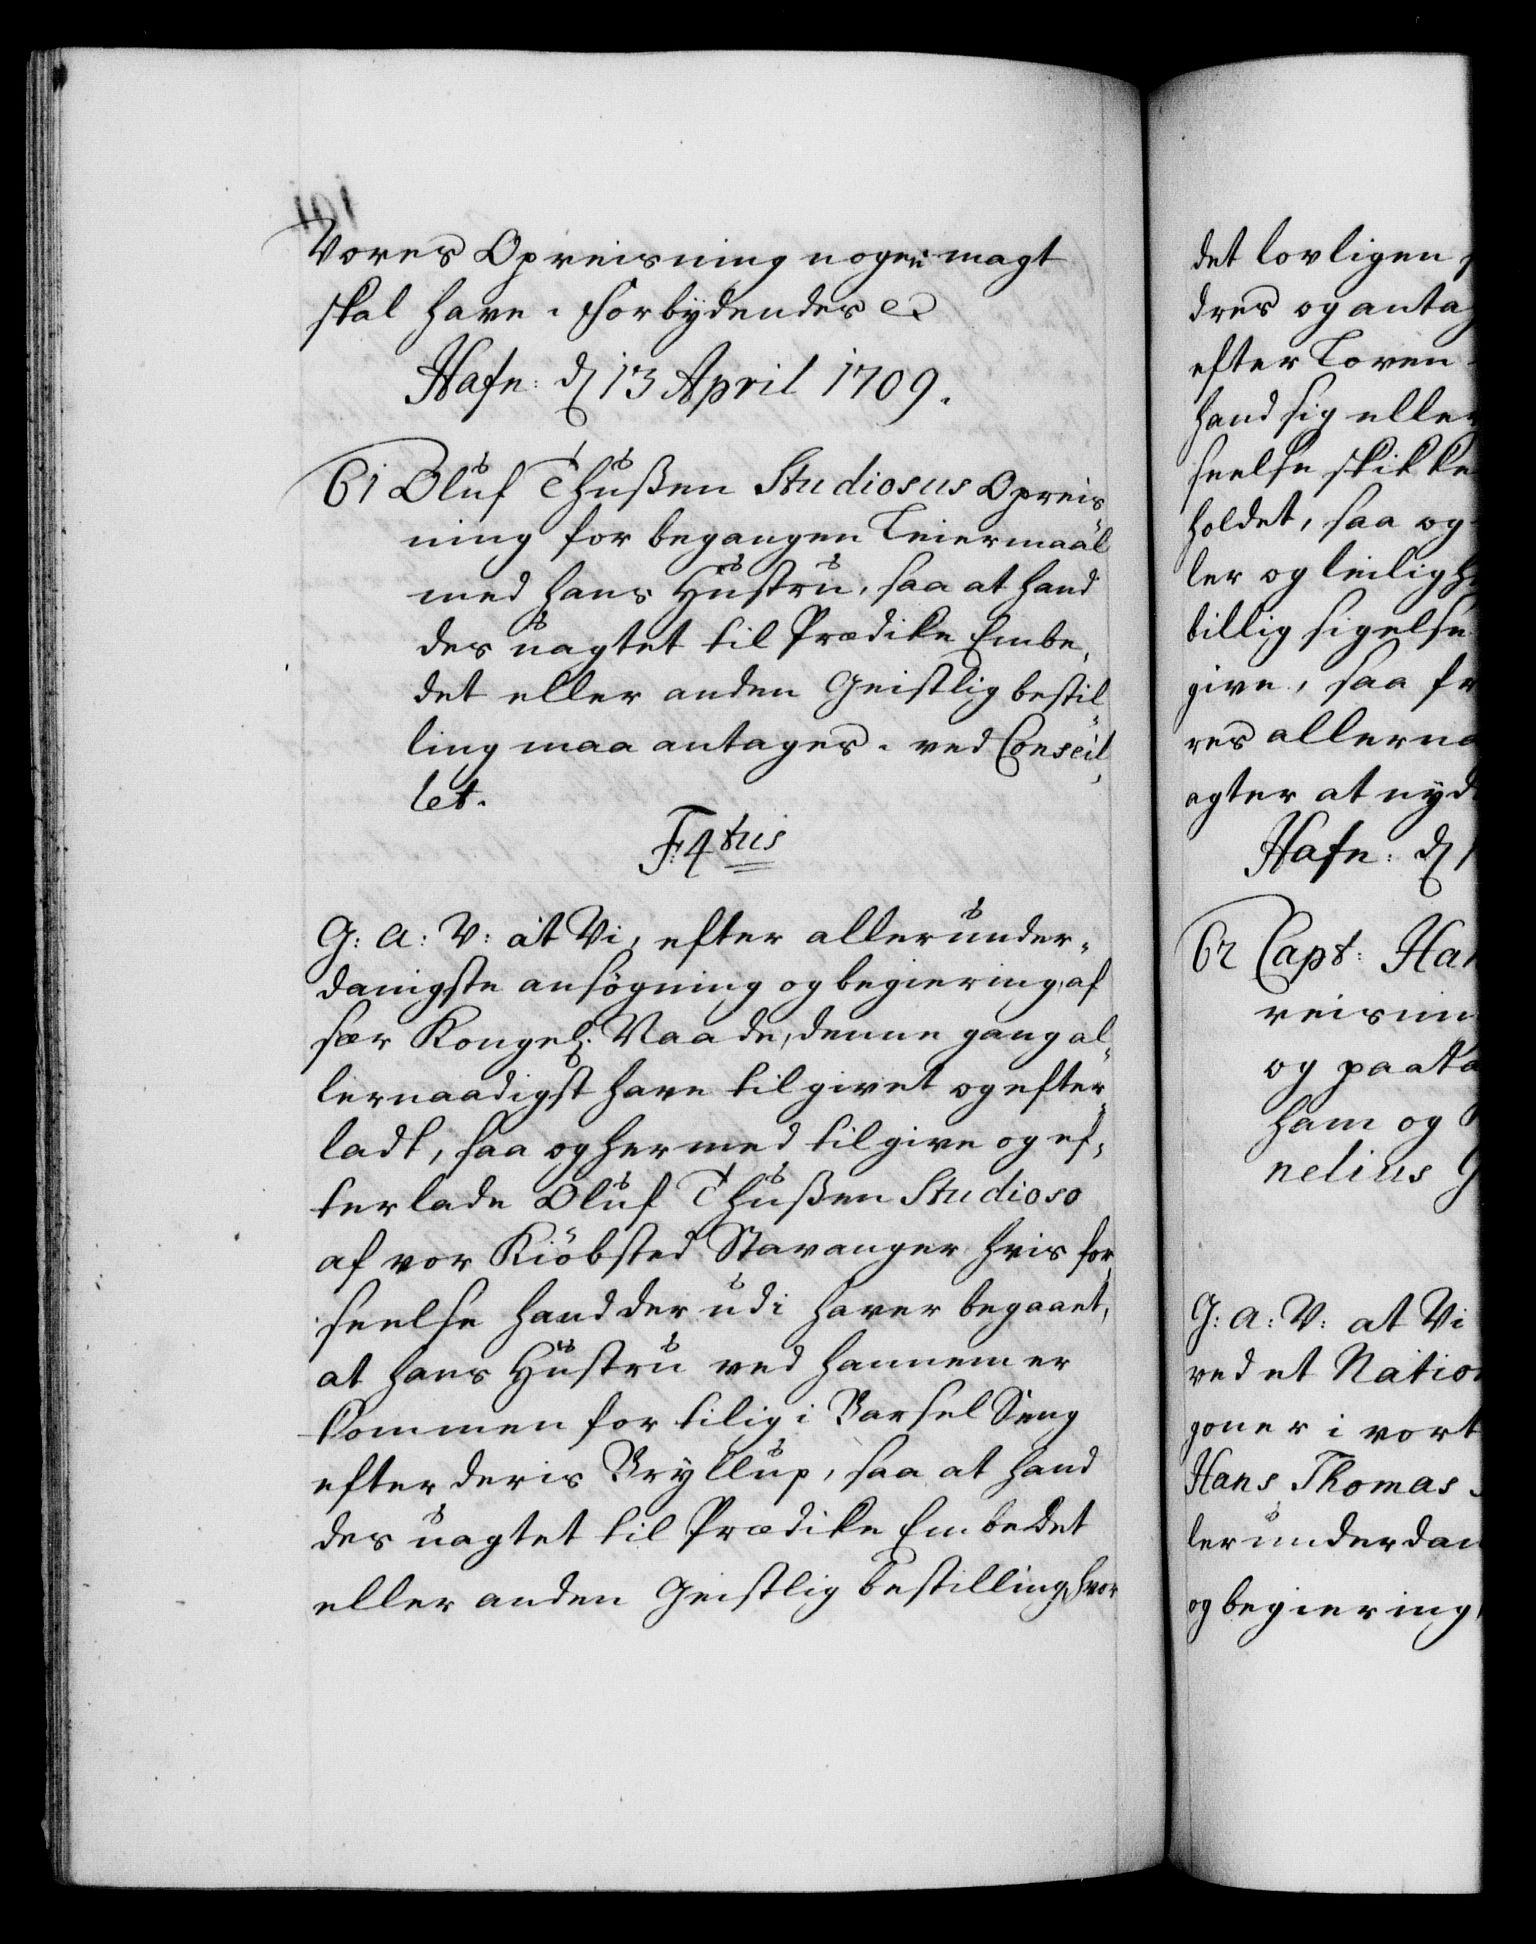 Vores Opreisning nogen magt
skal have. Forbydendes etc
Hafn: d 13 April 1709.
61 Oluf Thußen Studiosus Opreis„
ning for begangen Leiermaal
med hans Hustru, saa at hand
des uagtet til Prædike Embe„
det eller anden Geistlig bestil„
ling maa antages. ved Conseil„
let.
F: 4tus
G: A: V: at Vi, efter allerunder„
danigste ansögning og begiering, af
sær Kongel: Naade, denne gang al„
lernaadigst have tilgivet og efter„
ladt, saa og hermed tilgive og ef„
terlade Oluf Thußen Studioso
af vor Kiöbsted Stavanger hvis for„
seelse hand der udi haver begaaet,
at hans Hustru ved hannem er
kommen for tilig i Barsel Seng
efter deris Bryllup, saa at hand
des uagtet til Prædike Embedet
eller anden Geistlig bestilling, hvor
det lovligen
dres og antag
efter Loven
hand sig eller
seelse skikke
holdet, saa og
ler og leiligh
billig sigelse
give, saa fr
res allerna
agter at nyd
Hafn: d 1
62 Capt: Han
reisnin
og paata
ham og
nelius G
G: A: V: at Vi
ved et Nation
goner i vort
Hans Thomas
lerunderdan
og begiering,